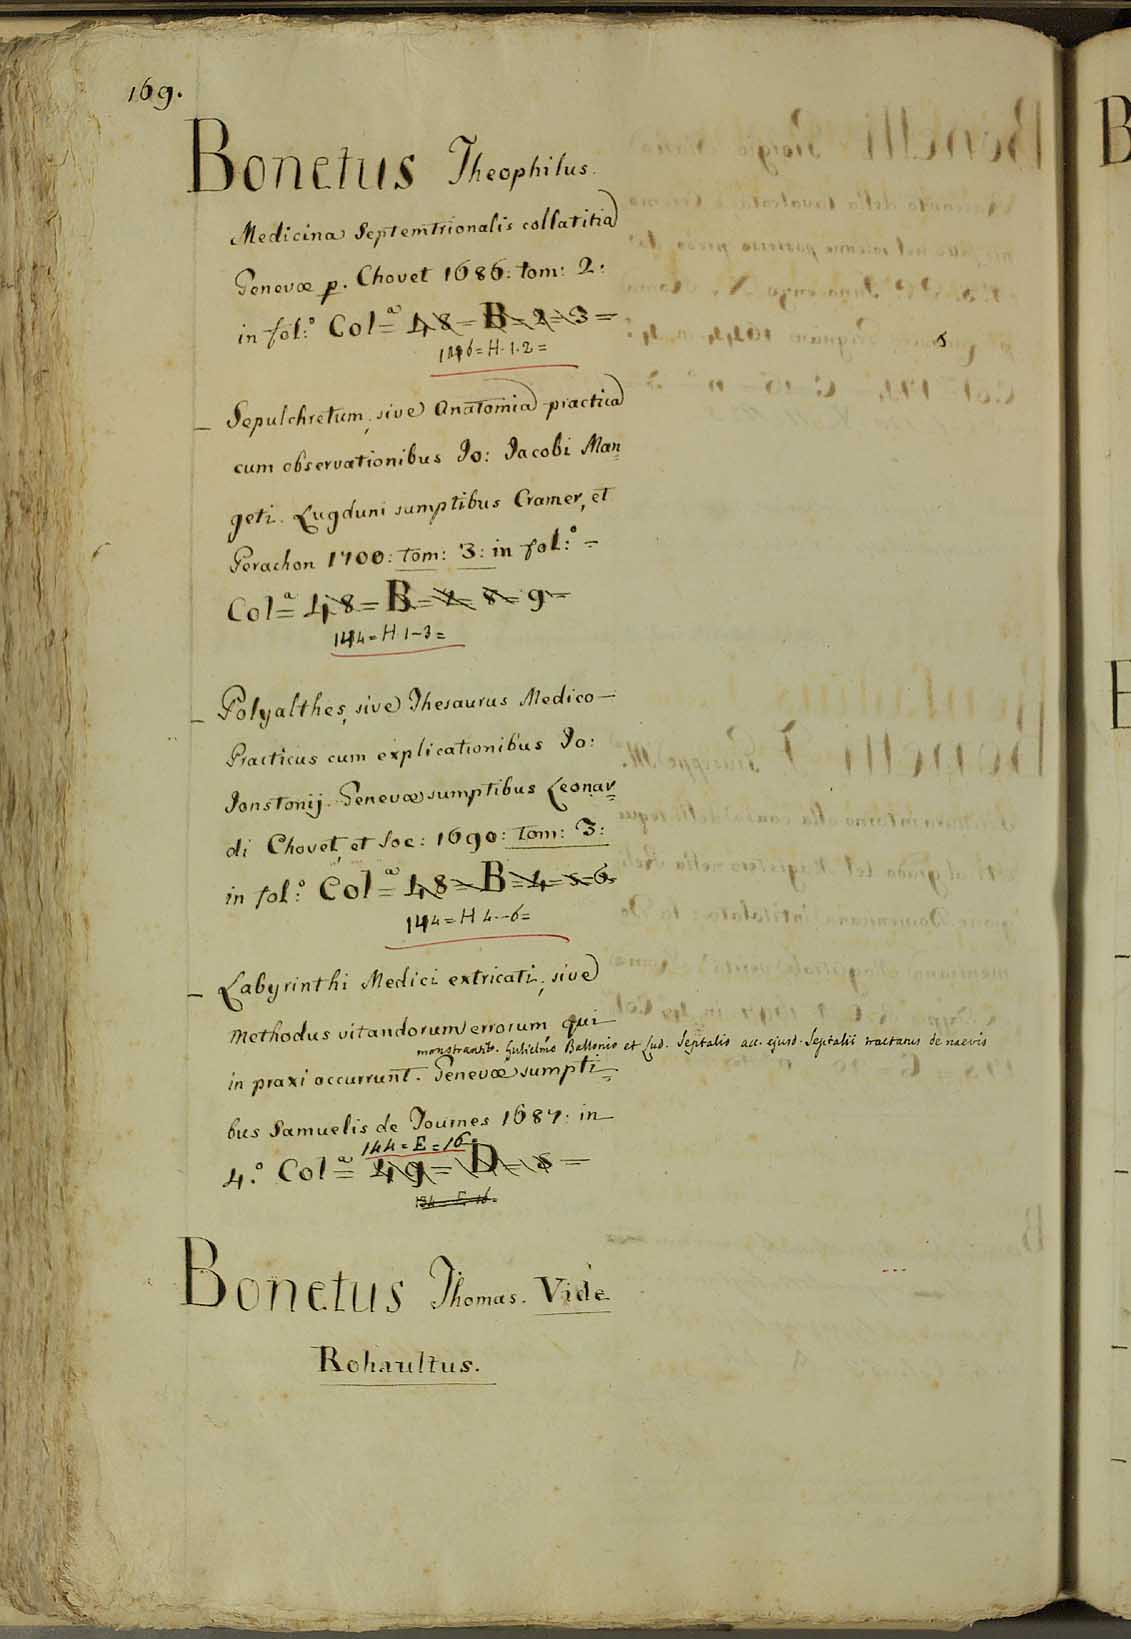 169.
Bonetus Theophilus.
Medicina Septemtrionalis collatitia
Genevæ p. Chovet 1686: tom: 2:
in fol:º Colª= 48=B=2=3=
H·1·2=
Sepulchretum, sive Anatomia practica
cum observationibus Jo: Jacobi Man=
geti. Lugduni sumptibus Cramer, et
Perachon 1700: tom: 3: in fol:º =
Colª= 48=B= 8= 9=
144=H 1-3=
Polyalthes, sive Thesaurus Medico-
Practicus cum explicationibus Jo:
Jonstonij. Genevæ sumptibus Leonar=
di Chovet, et Soc: 1690: tom: 3:
in fol:º Colª= 48=B=4=5=6.
144=H 4--6=
Labyrinthi Medici extricati, sive
Methodus vitandorum errorum, qui
monstrantib. Gulielmo Ballonio et Lud. Septalio acc. ejusd. Septalii tractatus de naevis
in praxi occurrunt. Genevæ sumpti=
bus Samuelis de Tournes 1687: in
144=E=16.
4.º Colª= 49=D=8=
Bonetus Thomas. Vide
Rohaultus.